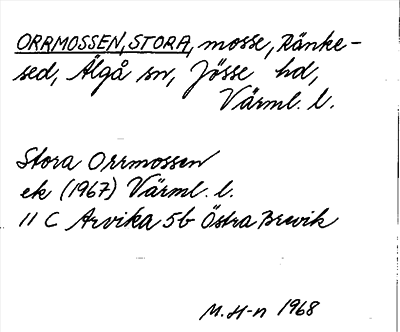 ORRMOSSEN, STORA, mosse, Ränke-
sed, Älgå sn, Jösse hd,
Värml. l.
Stora Orrmossen
ek (1967) Värml. l.
11 C Arvika 5b Östra Brevik
M. H-n 1968